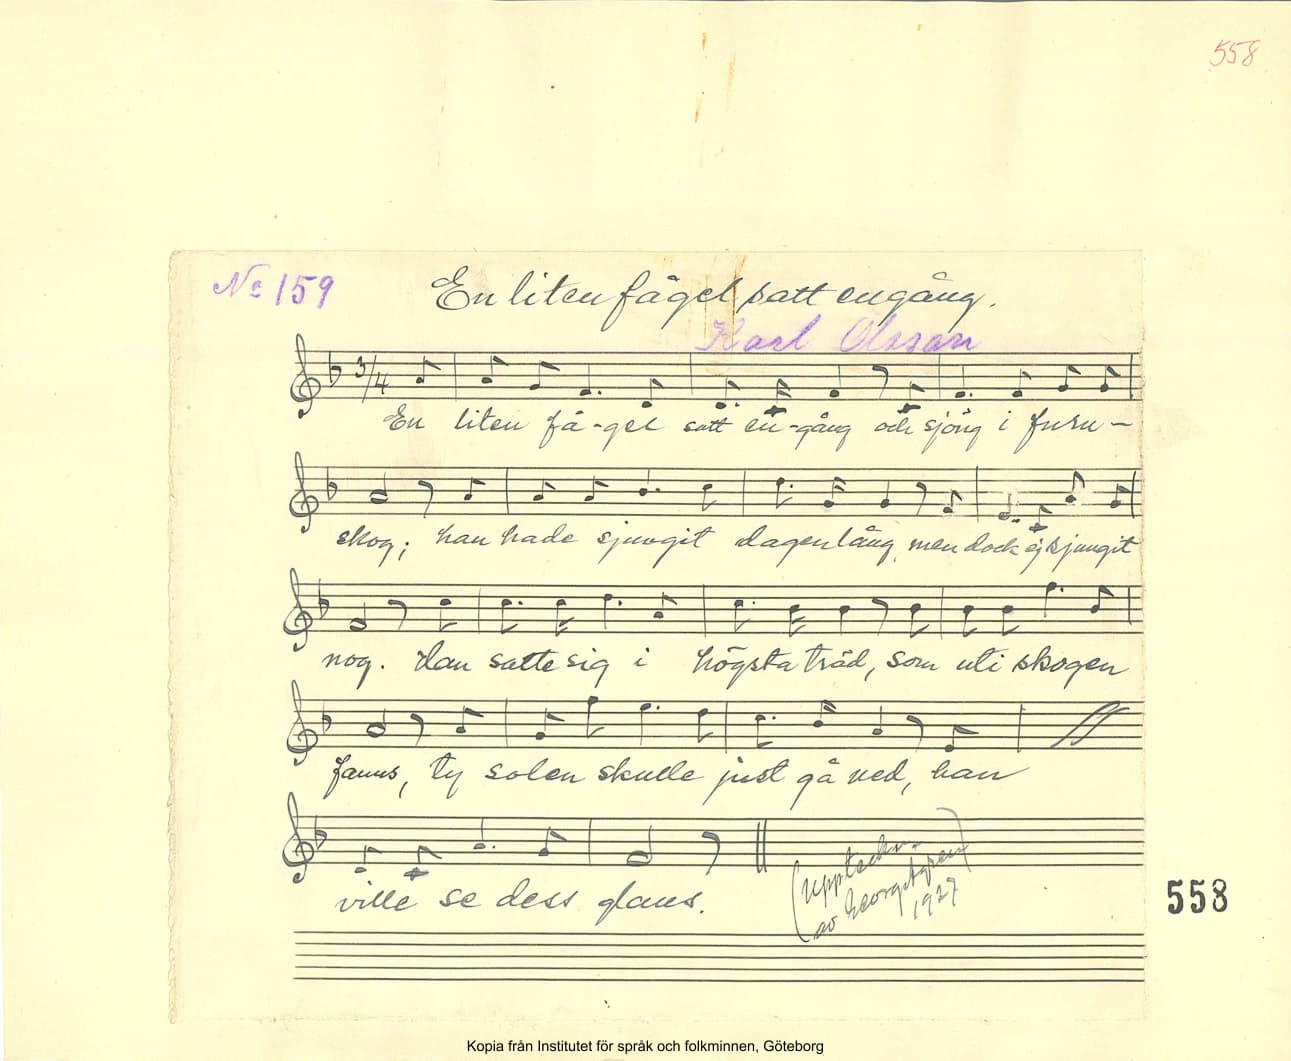 558
No 159
En liten fågel satt engång.
Karl Olsson
3/4
En liten få-gel satt en-gång och sjöng i furu-
skog; han hade sjungit dagen lång, men dock ej sjungit
nog. Han satte sig i högsta träd, som uti skogen
fanns, ty solen skulle just gå ned, han
ville se dess glans.
(Uppteckn.
av Georg Agren)
1927
558
Kopia från Institutet för språk och folkminnen, Göteborg